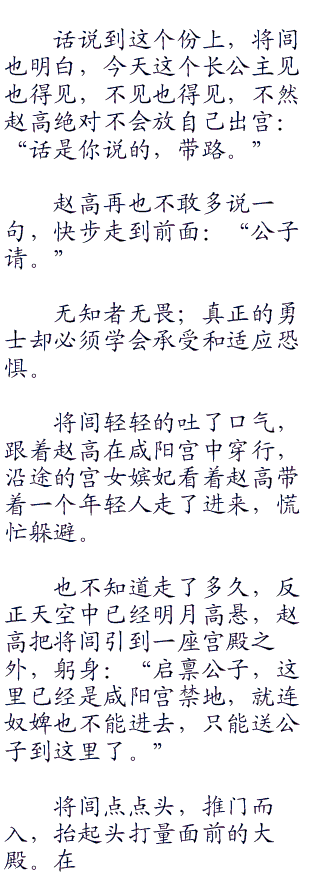 话说到这个份上，将闾
也明白，今天这个长公主见
也得见，不见也得见，不然
赵高绝对不会放自己出宫：
“话是你说的，带路。”
赵高再也不敢多说一
句，快步走到前面：“公子
请。”
无知者无畏；真正的勇
士却必须学会承受和适应恐
惧。
将闾轻轻的吐了口气，
跟着赵高在咸阳宫中穿行，
沿途的宫女嫔妃看着赵高带
着一个年轻人走了进来，慌
忙躲避。
也不知道走了多久，反
正天空中已经明月高悬，赵
高把将闾引到一座宫殿之
外，躬身：“启禀公子，这
里已经是咸阳宫禁地，就连
奴婢也不能进去，只能送公
子到这里了。”
将闾点点头，推门而
入，抬起头打量面前的大
殿。在